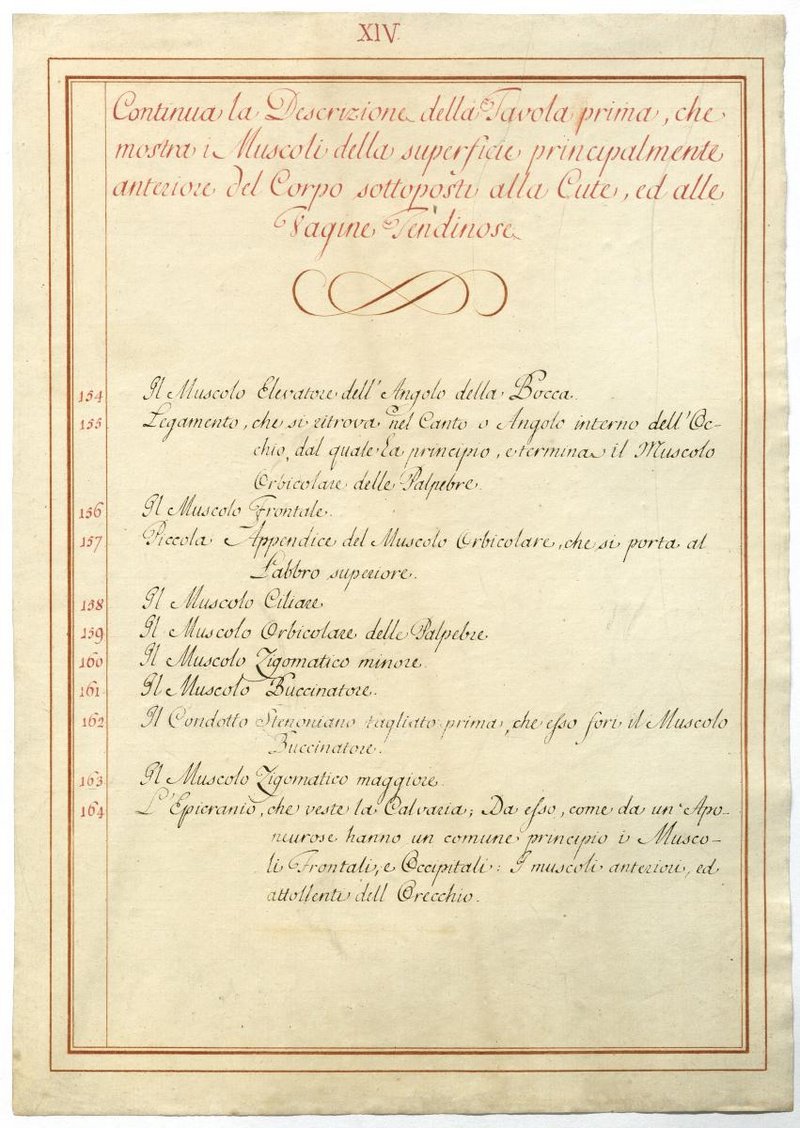 XIV
Continua la Descrizione della Tavola prima, che
mostra i Muscoli della superficie principalmente
anteriore del Corpo sottoposti alla Cute, ed alle
Vagine Tendinose
154 Il Muscolo Elevatore dell' Angolo della Bocca.
155 Legamento, che si ritrova nel Canto o Angolo interno dell' Oc-
chio, dal quale ha principio, e termina il Muscolo
Orbicolare delle Palpebre.
156 Il Muscolo Frontale.
157 Piccola Appendice del Muscolo Orbicolare, che si porta al
Labbro superiore.
158 Il Muscolo Ciliare
159 Il Muscolo Orbicolare delle Palpebre
160 Il Muscolo Zigomatico minore.
161 Il Muscolo Buccinatore.
162 Il Condotto Stenoniano tagliato prima, che esso fori il Muscolo
Buccinatore.
163 Il Muscolo Zigomatico maggiore.
164 L'Epicranio, che veste la Calvaria; Da esso, come da un' Apo-
neurose hanno un comune principio i Musco-
li Frontali, e Occipitali: I muscoli anteriori, ed
attollenti dell Orecchio.